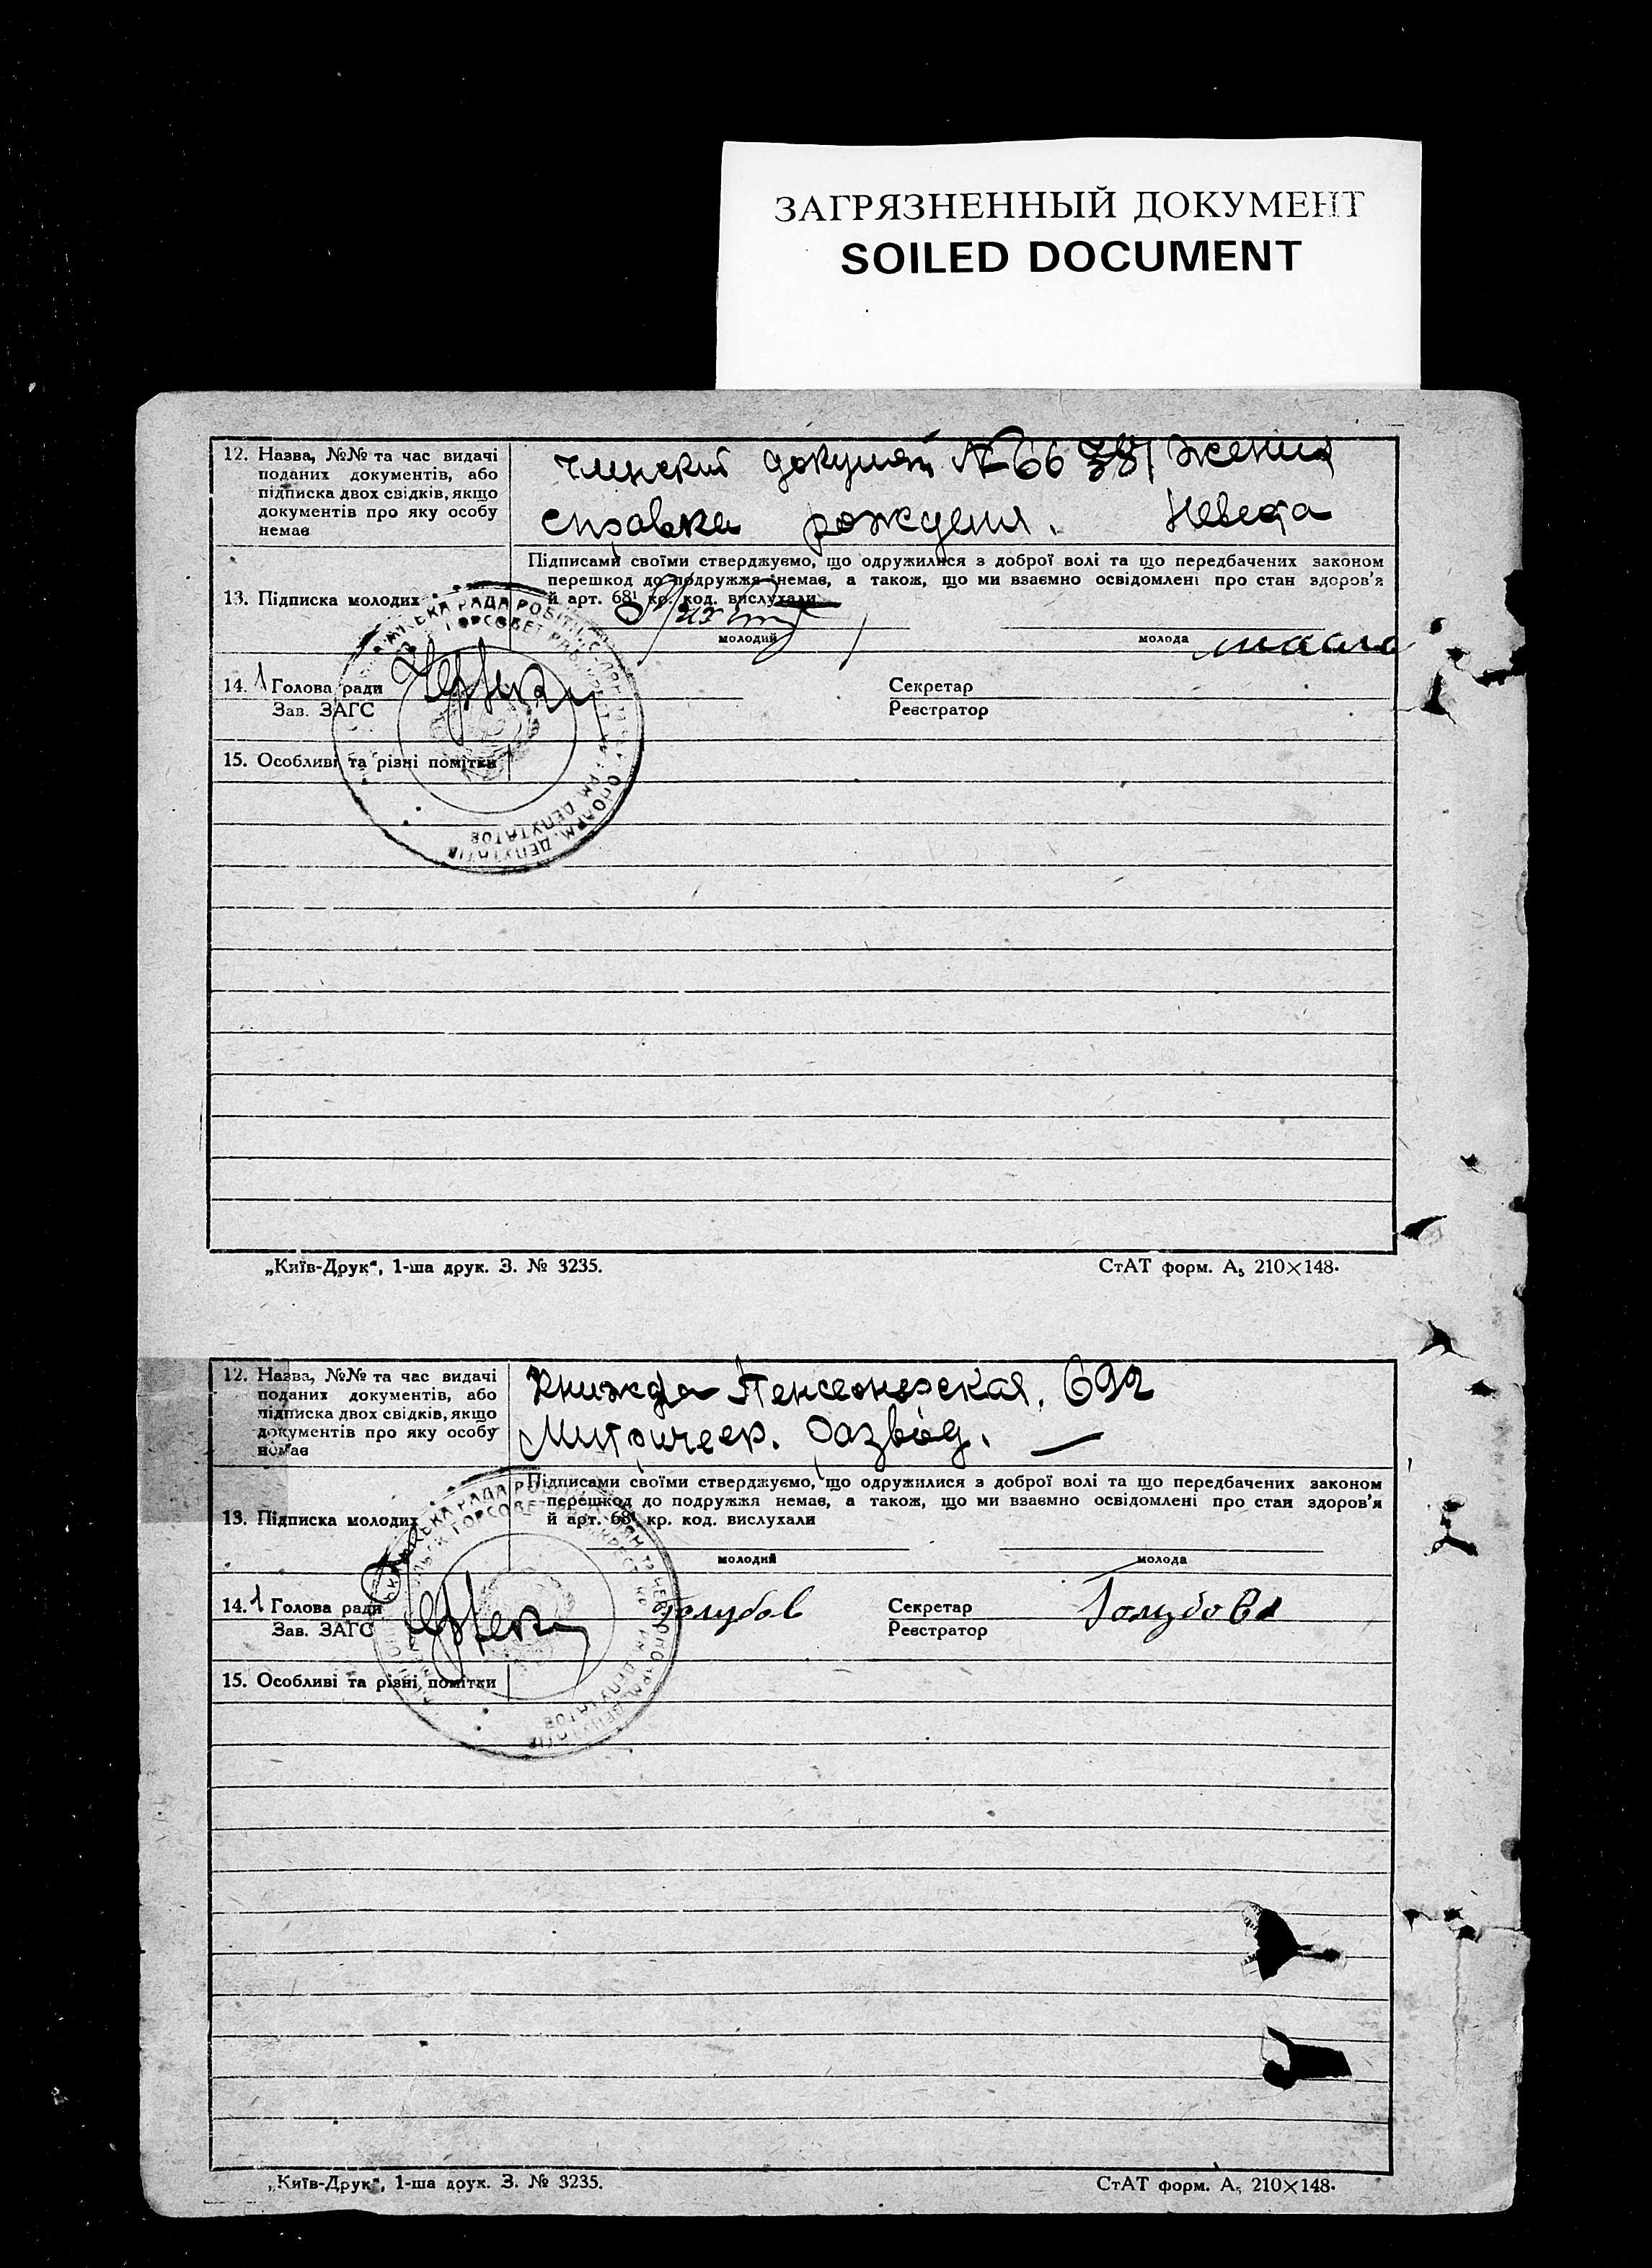 ЗАГРЯЗНЕННЫЙ ДОКУМЕНТ
SOILED DOCUMENT
12. Назва, №№ та час видачі
поданих документів, або
підписка двох свідків, якщо
документів про яку особу
немає
документ № 66 жениха
справка рождения. Невеста
Підписами своїми стверджуємо, що одружилися з доброї волі та що передбачених законом
перешкод до подружжя немає, а також, що ми взаємно освідомлені про стан здоров'я
й арт. 68¹ кр. код. вислухали
13. Підписка молодих
молодий
молода
14. Голова ради
Зав. ЗАГС
Секретар
Реєстратор
15. Особливі та різні помітки
„Київ-Друк“, 1-ша друк. З. № 3235.
СтАТ форм. А₅ 210×148.
12. Назва, №№ та час видачі
поданих документів, або
підписка двох свідків, якщо
документів про яку особу
немає
Пенсеонерская. 692
развод.
Підписами своїми стверджуємо, що одружилися з доброї волі та що передбачених законом
перешкод до подружжя немає, а також, що ми взаємно освідомлені про стан здоров'я
й арт. 68¹ кр. код. вислухали
13. Підписка молодих
молодий
молода
14. Голова ради
Зав. ЗАГС
Голубов
Секретар
Реєстратор
Голубова
15. Особливі та різні помітки
„Київ-Друк“, 1-ша друк. З. № 3235.
СтАТ форм. А₅ 210×148.